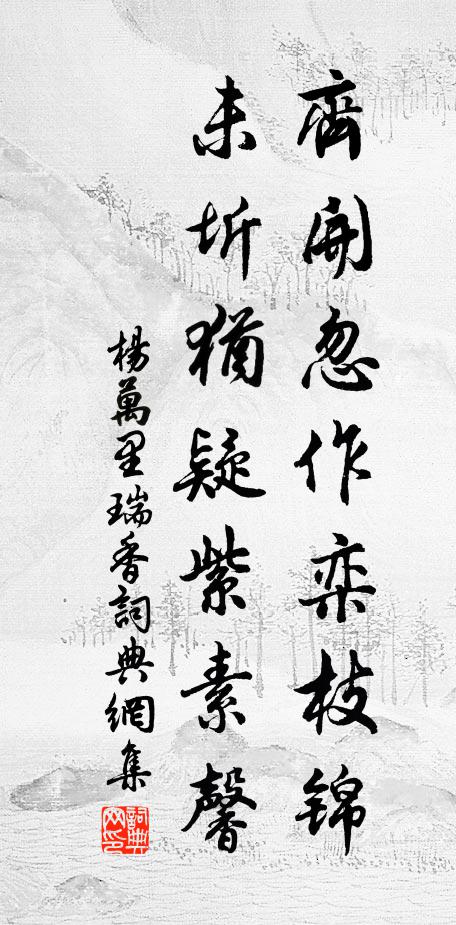 齊開忽作栾枝锦
未坼猶疑紫素馨
楊萬里瑞香詞典網集
詞典
网印